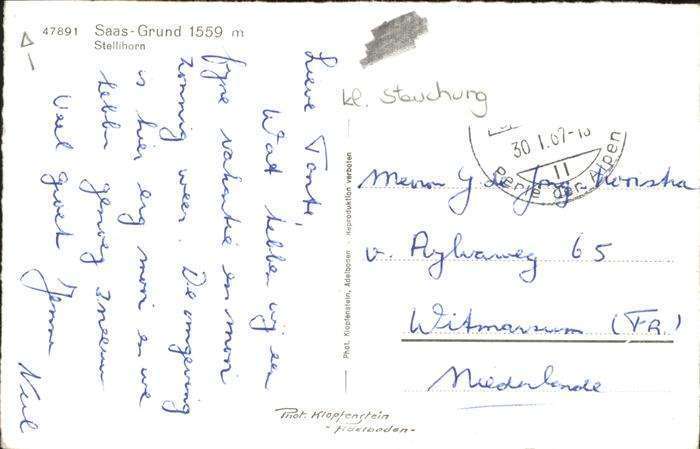 47891 Saas-Grund 1559 m
Stellihorn
Lieve Tante,
Wat hebben wij een
fijne vakantie en mooi
zonnig weer. De omgeving
is hier erg mooi en we
hebben genoeg sneeuw
Veel groet
kl. Stauchung
30.1.67-18
II
Perle der Alpen
Mevrou J de Jong-Hoorstra
v. Aylvaweg 65
Witmarsum (Fr.)
Niederlande
Phot. Klopfenstein, Adelboden - Reproduktion verboten
Phot. Klopfenstein
- Adelboden -